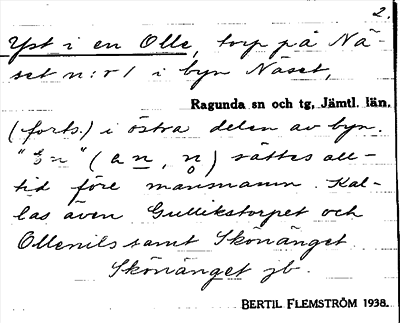 2.
Yst i en Olle, torp på Nä-
set n:r 1 i byn Näset,
Ragunda sn och tg, Jämtl. län.
(forts.) i östra delen av byn.
"En" (an, n) sättes all-
tid före mansnamn. Kal-
las även Gullikstorpet och
Ollenils samt Skönänget.
Skönänget jb.
BERTIL FLEMSTRÖM 1938.